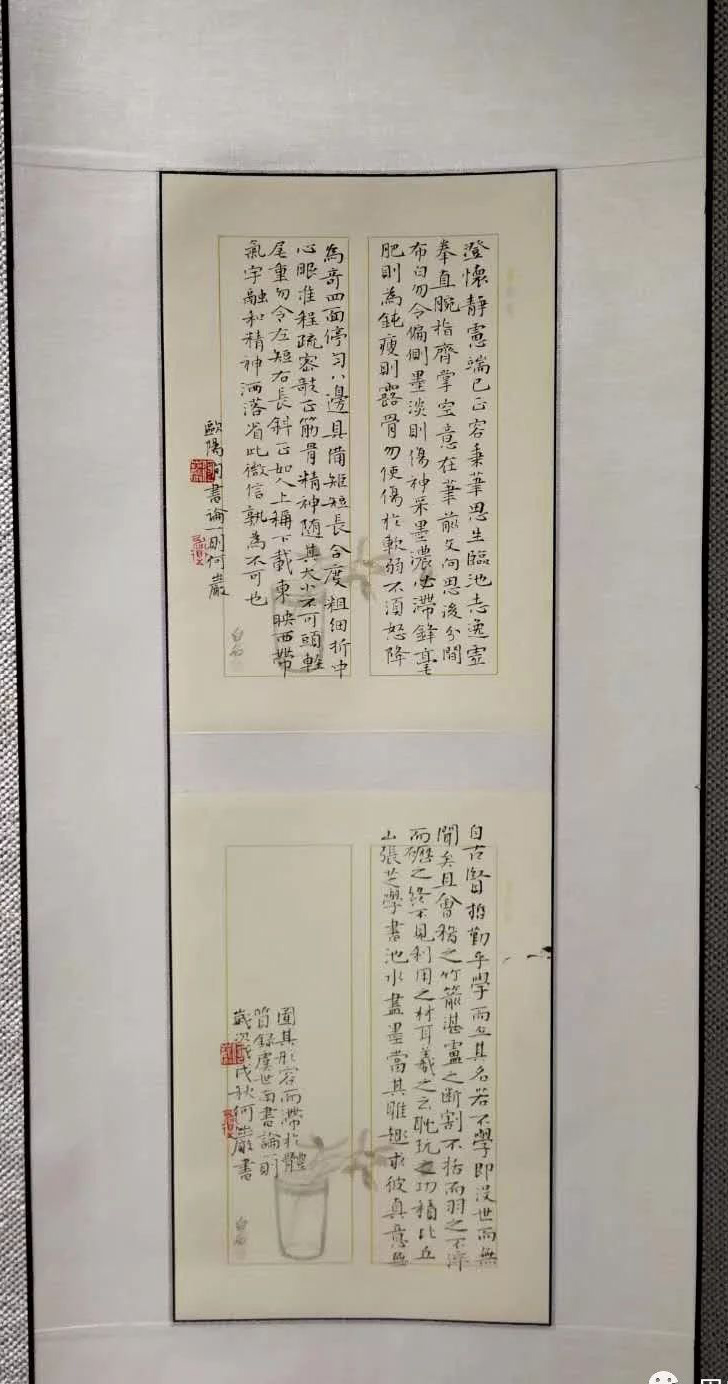 澄懷靜慮端己正容秉筆思生臨池志逸虛
拳直腕指齊掌空意在筆前文向思後分間
布白勿令偏側墨淡則傷神采墨濃必滯鋒毫
肥則為鈍瘦則露骨勿使傷於軟弱不須怒降
為奇四面停勻八邊具備短長合度粗細折中
心眼准程疏密敧正筋骨精神隨其大小不可頭輕
尾重勿令左短右長斜正如人上稱下載東映西帶
氣宇融和精神洒落省此微信孰為不可也
歐陽詢書論一則何巖
白石
自古賢哲勤乎學而立其名若不學即沒世而無
聞矣且會稽之竹箭湛盧之斷割不括而羽之不淬
而礪之終不見利用之材耳羲之云耽玩之功積比丘
山張芝學書池水盡墨當其雅趣求彼真意無
圖其形容而滯於體
節錄虞世南書論一則
歲次戊戌秋何巖書
白石